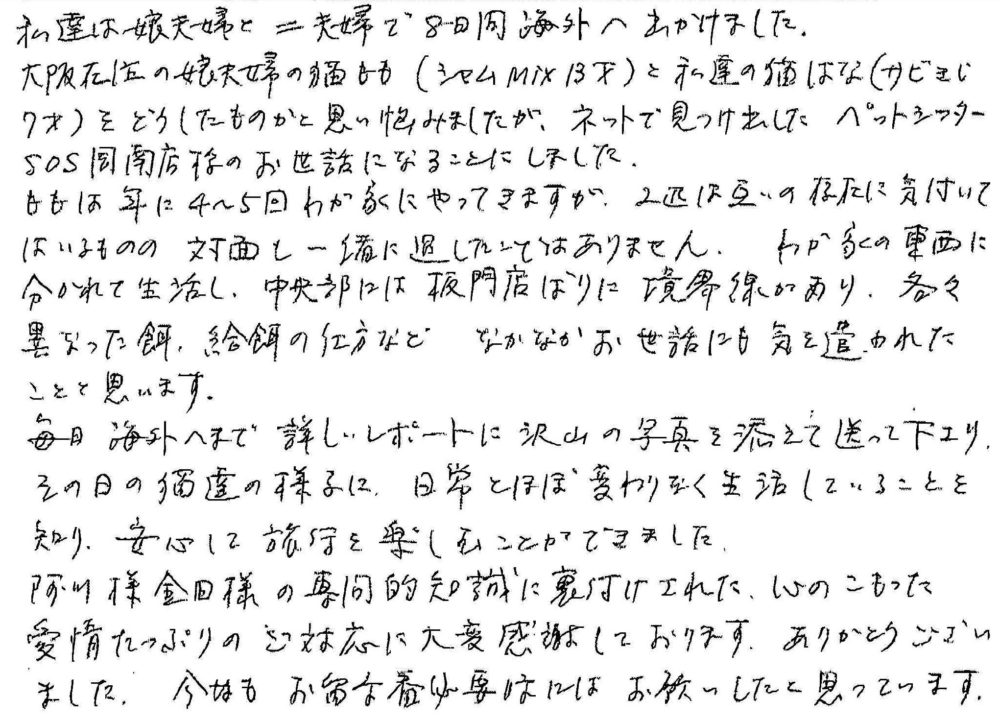 私達は娘夫婦と二夫婦で8日間海外へ出かけました。
大阪在住の娘夫婦の猫もも(シャムMIX13才)と私達の猫はな(サビねこ
7才)をどうしたものかと思い悩みましたが、ネットで見つけ出したペットシッター
SOS岡南店様のお世話になることにしました。
ももは年に4〜5回わが家にやってきますが、2匹は互いの存在に気付いて
はいるものの対面し一緒に過したことはありません。わが家の東西に
分かれて生活し、中央部には板門店ばりに境界線があり、各々
異なった餌、給餌の仕方など なかなかお世話にも気を遣われた
ことと思います。
毎日海外へまで詳しいレポートに沢山の写真を添えて送って下さり、
その日の猫達の様子に、日常とほぼ変わりなく生活していることを
知り、安心して旅行を楽しむことができました。
阿川様金田様の専門的知識に裏付けされた、心のこもった
愛情たっぷりのご対応に大変感謝しております。ありがとうござい
ました。今後もお留守番必要時にはお願いしたいと思っています。